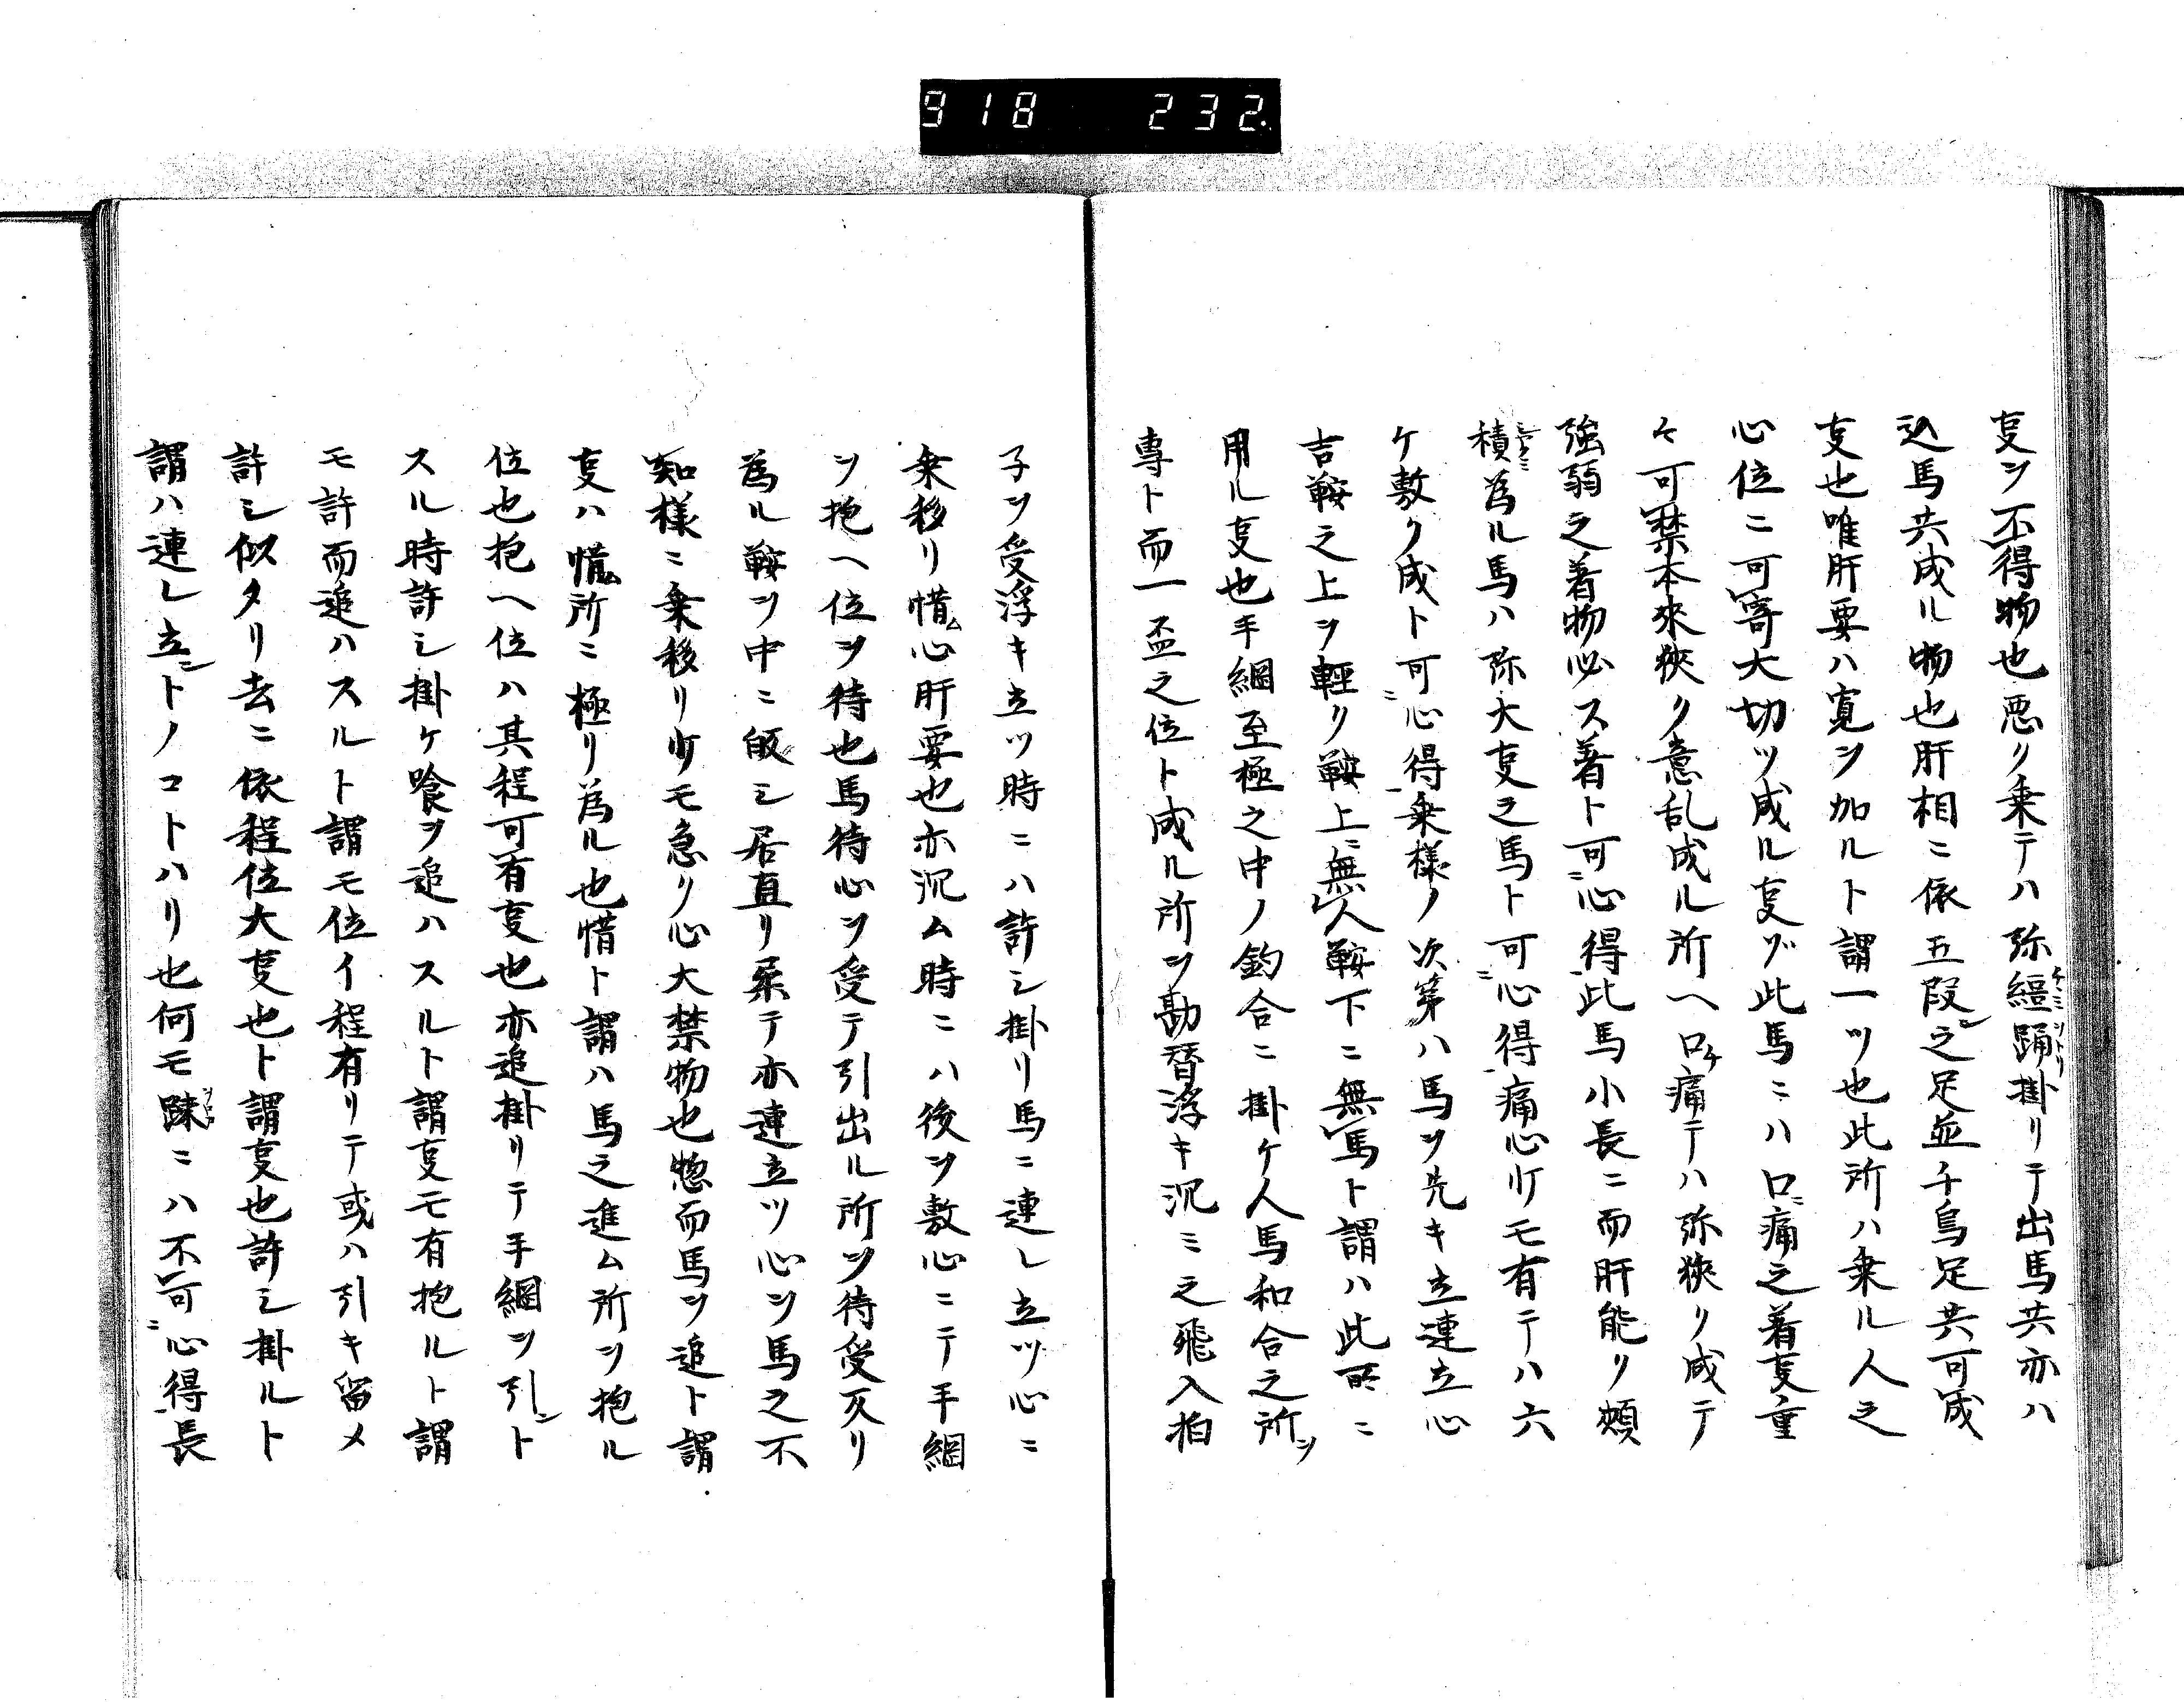 918 232.
叓ヲ不得物也悪リ乗テハ弥縕踊掛リテ出馬共亦ハ
込馬共成ル物也肝相ニ依五段之足並千鳥足共可成
叓也唯肝要ハ寛ヲ加ルト謂一ツ也此所ハ乗ル人之
心位ニ可寄大切ツ成ル叓ヅ此馬ニハ口ニ痛之着叓重
々可禁本来狹ク意乱成ル所ヘ口チ痛テハ弥狹リ成テ
強弱之着物必ス着ト可ニ心得此馬小長ニ而肝能ク頬
積為ル馬ハ弥大叓之馬ト可ニ心得痛心少モ有テハ六
ケ敷ク成ト可ニ心得乗様ノ次第ハ馬ヲ先キ立連立心
吉鞍之上ヲ軽ク鞍上ニ無人鞍下ニ無馬ト謂ハ此所ニ
用ル叓也手綱至極之中ノ釣合ニ掛ケ人馬和合之所ヲ
専ト而一盃之位ト成ル所ヲ勘替浮キ沉ミ之飛入拍
子ヲ受浮キ立ツ時ニハ許シ掛リ馬ニ連レ立ツ心ニ
乗移リ惜ム心肝要也亦沉ム時ニハ後ヲ敷心ニテ手綱
ヲ抱ヘ位ヲ待也馬待心ヲ受テ引出ル所ヲ待受又リ
為ル鞍ヲ中ニ皈シ居直リ柔テ亦連立ツ心ヲ馬之不
知様ニ乗移リ少モ急ク心大禁物也惣而馬ヲ追ト謂
叓ハ惜ム所ニ極リ為ル也惜ト謂ハ馬之進ム所ヲ抱ル
位也抱ヘ位ハ其程可有叓也亦追掛リテ手綱ヲ引ント
スル時許シ掛ケ喰ヲ追ハスルト謂叓モ有抱ルト謂
モ許而追ハスルト謂モ位イ程有リテ或ハ引キ留メ
許シ似タリ去ニ依程位大叓也ト謂叓也許シ掛ルト
謂ハ連レ立ントノコトハリ也何モ踈ニハ不可ニ心得長